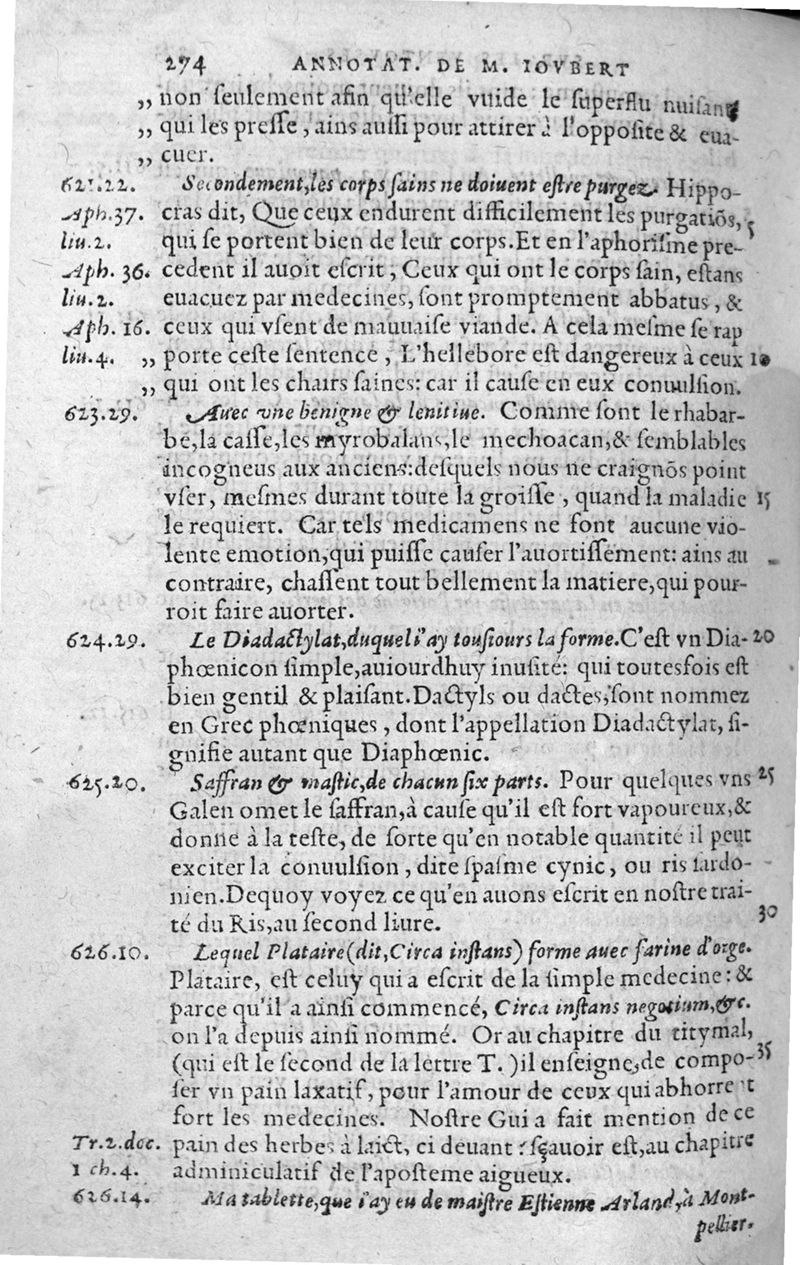 274 ANNOTAT. DE M. IOVBERT
„ non ſeulement afin qu'elle vuide le ſuperflu nuiſant
„ qui les preſſe, ains auſſi pour attirer à l'oppoſite & eua-
„ cuer.
621.22. Secondement, les corps ſains ne doiuent eſtre purgez. Hippo-
Aph.37. cras dit, Que ceux endurent difficilement les purgatiōs, 5
liu.2. qui ſe portent bien de leur corps. Et en l'aphoriſme pre-
Aph. 36. cedent il auoit eſcrit, Ceux qui ont le corps ſain, eſtans
liu.2. euacuez par medecines, ſont promptement abbatus, &
Aph. 16. ceux qui vſent de mauuaiſe viande. A cela meſme ſe rap
liu.4. „ porte ceſte ſentence, L'hellebore eſt dangereux à ceux 10
„ qui ont les chairs ſaines: car il cauſe en eux conuulſion.
623.29. Auec vne benigne & lenitiue. Comme ſont le rhabar-
bé, la caſſe, les myrobalans, le mechoacan, & ſemblables
incogneus aux anciens: deſquels nous ne craignōs point
vſer, meſmes durant toute la groiſſe, quand la maladie 15
le requiert. Car tels medicamens ne font aucune vio-
lente emotion, qui puiſſe cauſer l'auortiſſement: ains au
contraire, chaſſent tout bellement la matiere, qui pour-
roit faire auorter.
624.29. Le Diadactylat, duquel i'ay touſiours la forme. C'eſt vn Dia- 20
phœnicon ſimple, auiourdhuy inuſité: qui toutesfois eſt
bien gentil & plaiſant. Dactyls ou dactes, ſont nommez
en Grec phœniques, dont l'appellation Diadactylat, ſi-
gnifie autant que Diaphœnic.
625.20. Saffran & maſtic, de chacun ſix parts. Pour quelques vns 25
Galen omet le ſaffran, à cauſe qu'il eſt fort vapoureux, &
donne à la teſte, de ſorte qu'en notable quantité il peut
exciter la conuulſion, dite ſpaſme cynic, ou ris ſardo-
nien. Dequoy voyez ce qu'en auons eſcrit en noſtre trai-
té du Ris, au ſecond liure. 30
626.10. Lequel Plataire (dit, Circa inſtans) forme auec farine d'orge.
Plataire, eſt celuy qui a eſcrit de la ſimple medecine: &
parce qu'il a ainſi commencé, Circa inſtans negotium, &c.
on l'a depuis ainſi nommé. Or au chapitre du titymal,
(qui eſt le ſecond de la lettre T.) il enſeigne, de compo- 35
ſer vn pain laxatif, pour l'amour de ceux qui abhorrent
fort les medecines. Noſtre Gui a fait mention de ce
Tr.2.doc. pain des herbes à laict, ci deuant: ſçauoir eſt, au chapitre
1 ch.4. adminiculatif de l'apoſteme aigueux.
626.14. Ma tablette, que i'ay eu de maiſtre Eſtienne Arland, à Mont-
pellier.